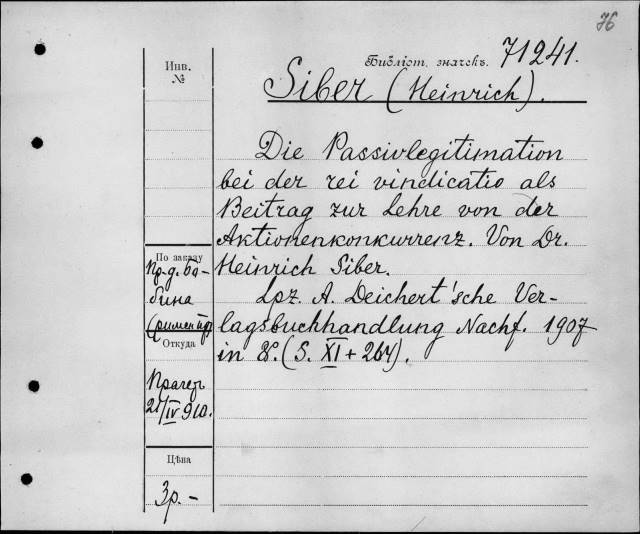 76
Библіот. значекъ. 71241.
Инв.
№
Siber (Heinrich).
Die Passivlegitimation
bei der rei vindicatio als
Beitrag zur Lehre von der
Aktionenkonkurrenz. Von Dr.
Heinrich Siber.
Lpz. A. Deichert'sche Ver-
lagsbuchhandlung Nachf. 1907
in 8º. (S. XI + 264).
По заказу
бина
Откуда
21/IV 910.
Цѣна
3р. -